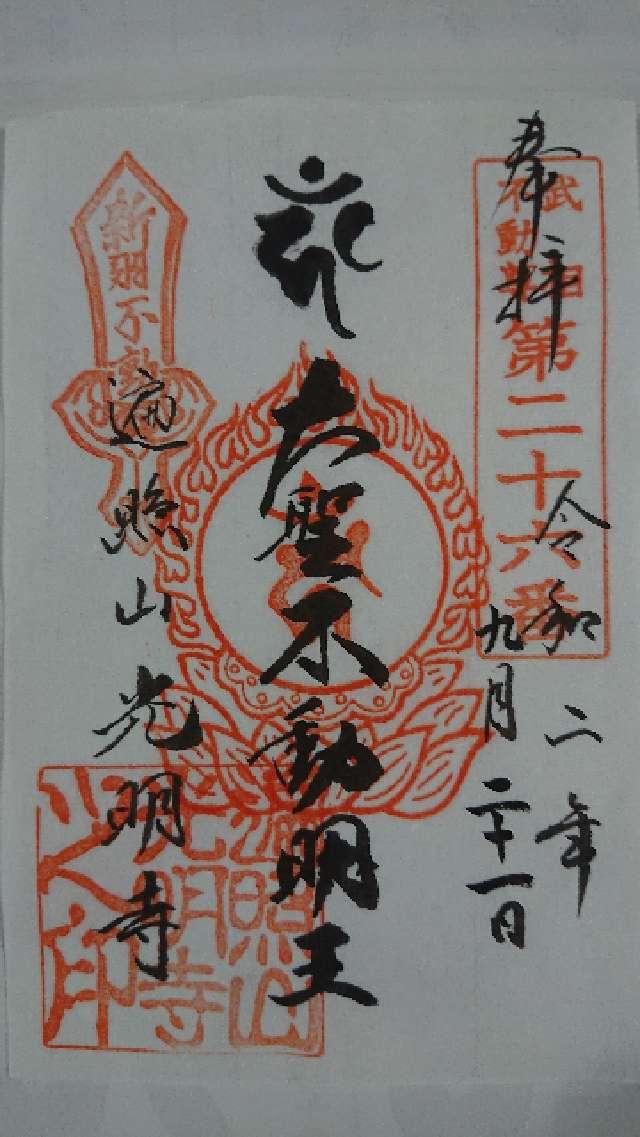 奉拝
武相
不動尊
第二十六番
令和二年
九月二十一日
大聖不動明王
新羽不動
遍照山光明寺
遍照山
光明寺
之印